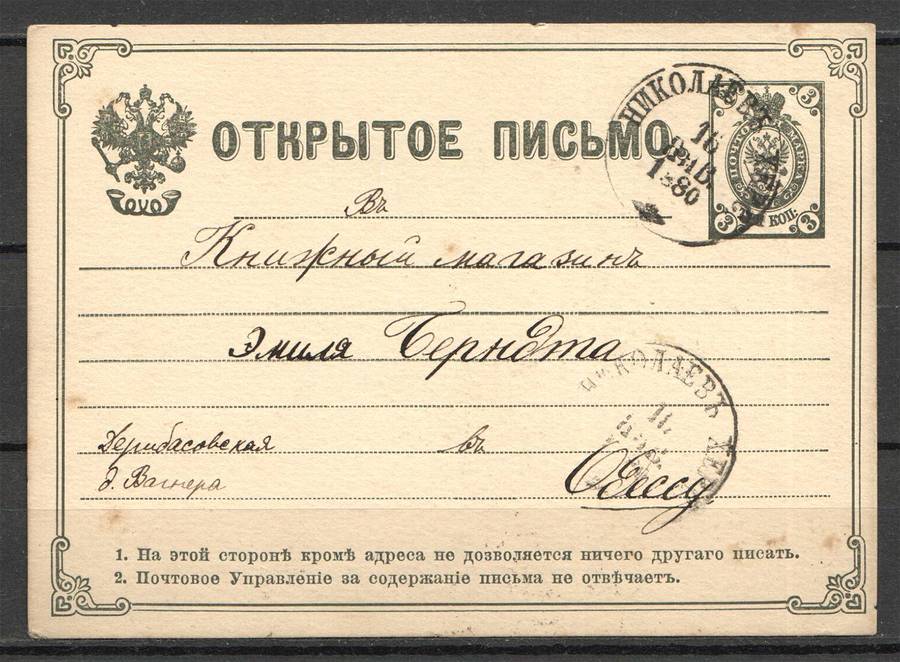 ОТКРЫТОЕ ПИСЬМО
НИКОЛАЕВЪ
16
ЯНВ.
1880
3
ПОЧТОВ МАРКА
3 КОП: 3
Въ
Книжный магазинъ
Эмиля Берндта
НИКОЛАЕВЪ ХЕР
Дерибасовская въ
д. Вагнера Одессу
1. На этой сторонѣ кромѣ адреса не дозволяется ничего другаго писать.
2. Почтовое Управленіе за содержаніе письма не отвѣчаетъ.